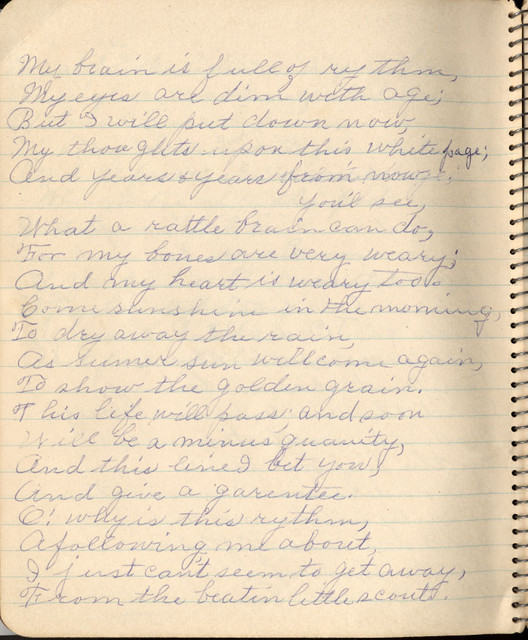 My brain is full of rythm,
My eyes are dim with age;
But I will put down now,
My thoughts upon this white page;
And years & years from now
You'll see,
What a rattle brain can do,
For my bones are very weary;
And my heart is weary too.
Come sunshine in the morning,
To dry away the rain,
As sumer sun will come again,
To show the golden grain.
This life will pass, and soon
Will be a minus quanity,
And this line I bet you,
And give a garentee.
O! why is this rythm,
A following me about,
I just can't seem to get away,
From the beaten little scouts.